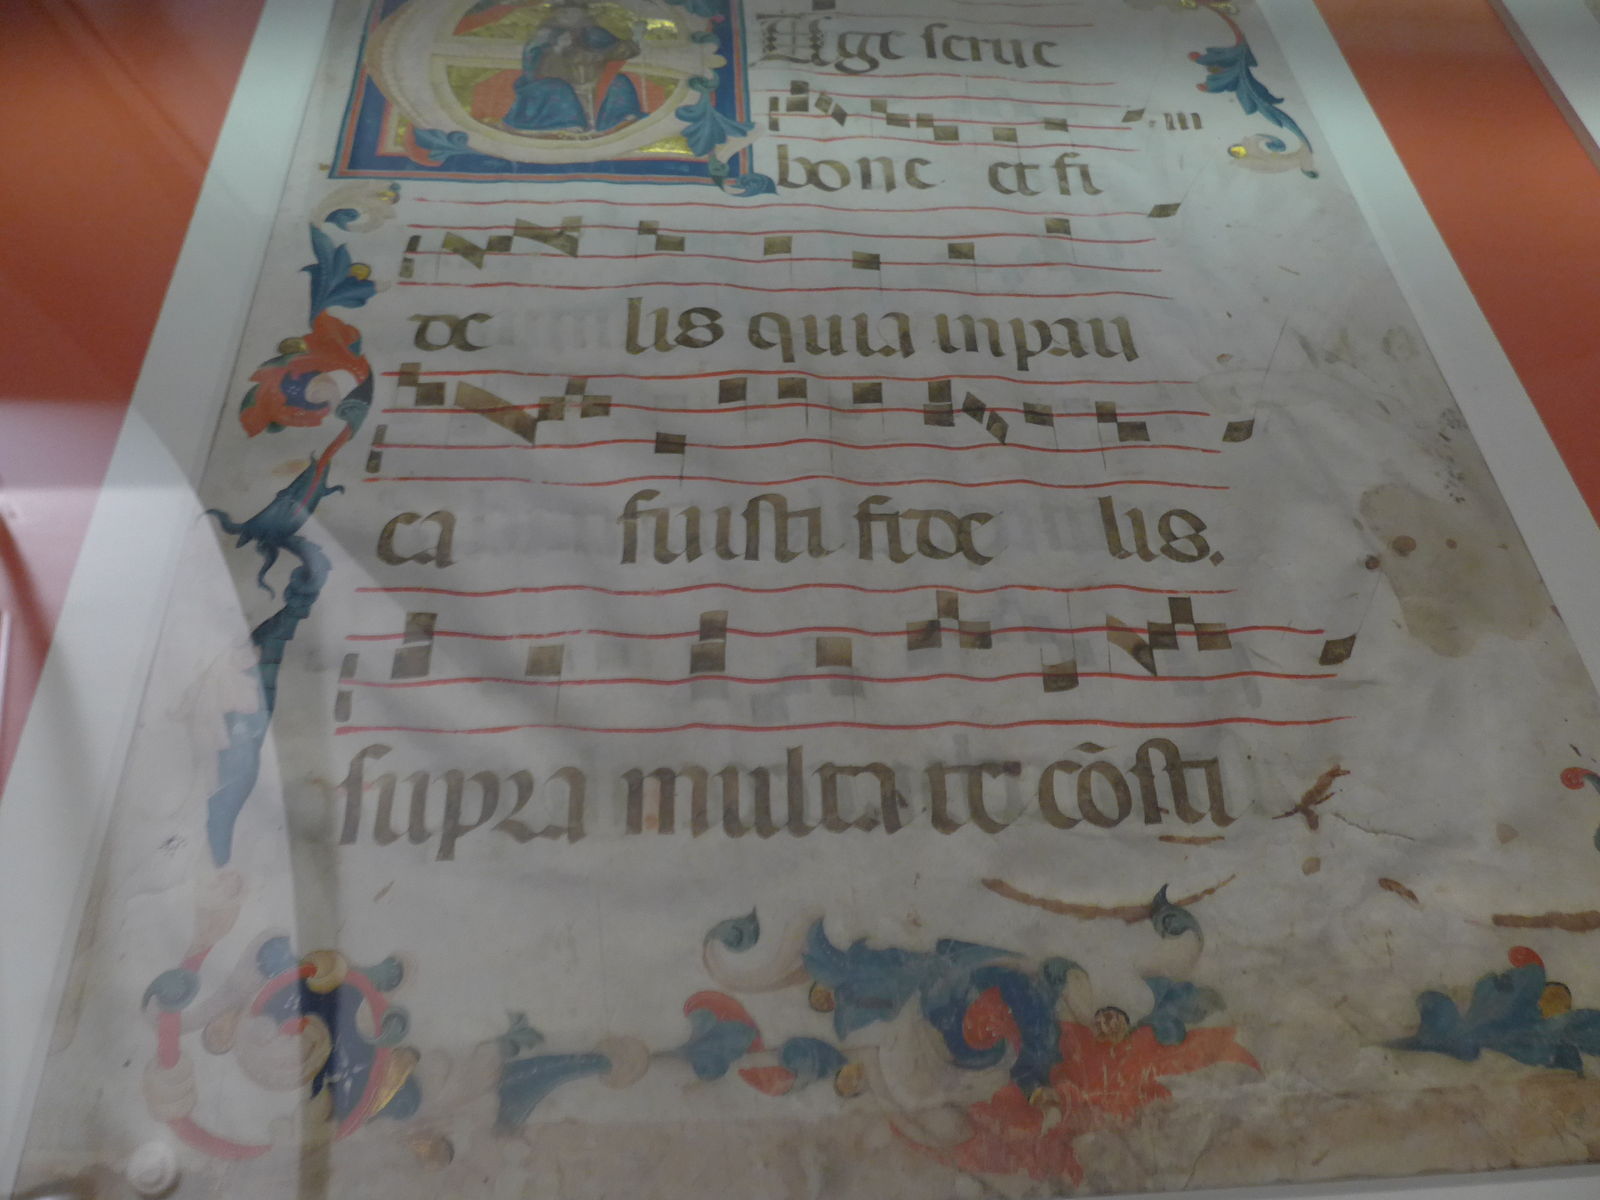 Euge serue
bone et fi
de lis quia in pau
ca fuisti fide lis.
supra multa te cõsti